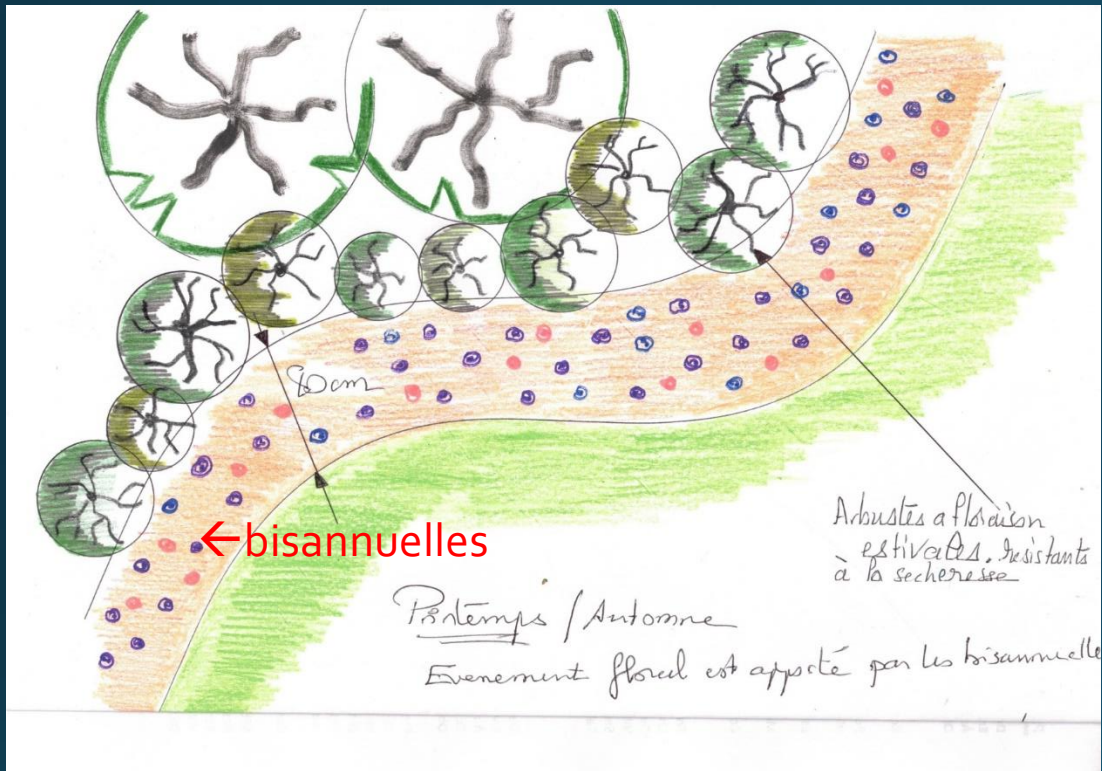 80cm
←bisannuelles
Arbustes a floraison
estivales. resistants
à la secheresse
Printemps / Automne
Evenement floral est apporté par les bisannuelle